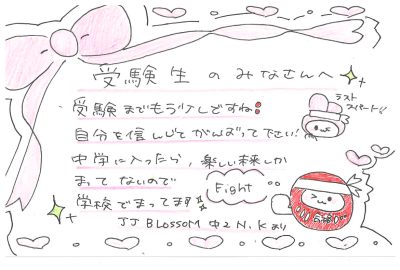 受験生のみなさんへ
受験までもう少しですね!
ラスト
スパート!!
自分を信じてがんばって下さい!
中学に入ったら、楽しい未来しか
まってないので
Fight
学校でまってます!
合格
JJ BLossoM 中2 N.Kより